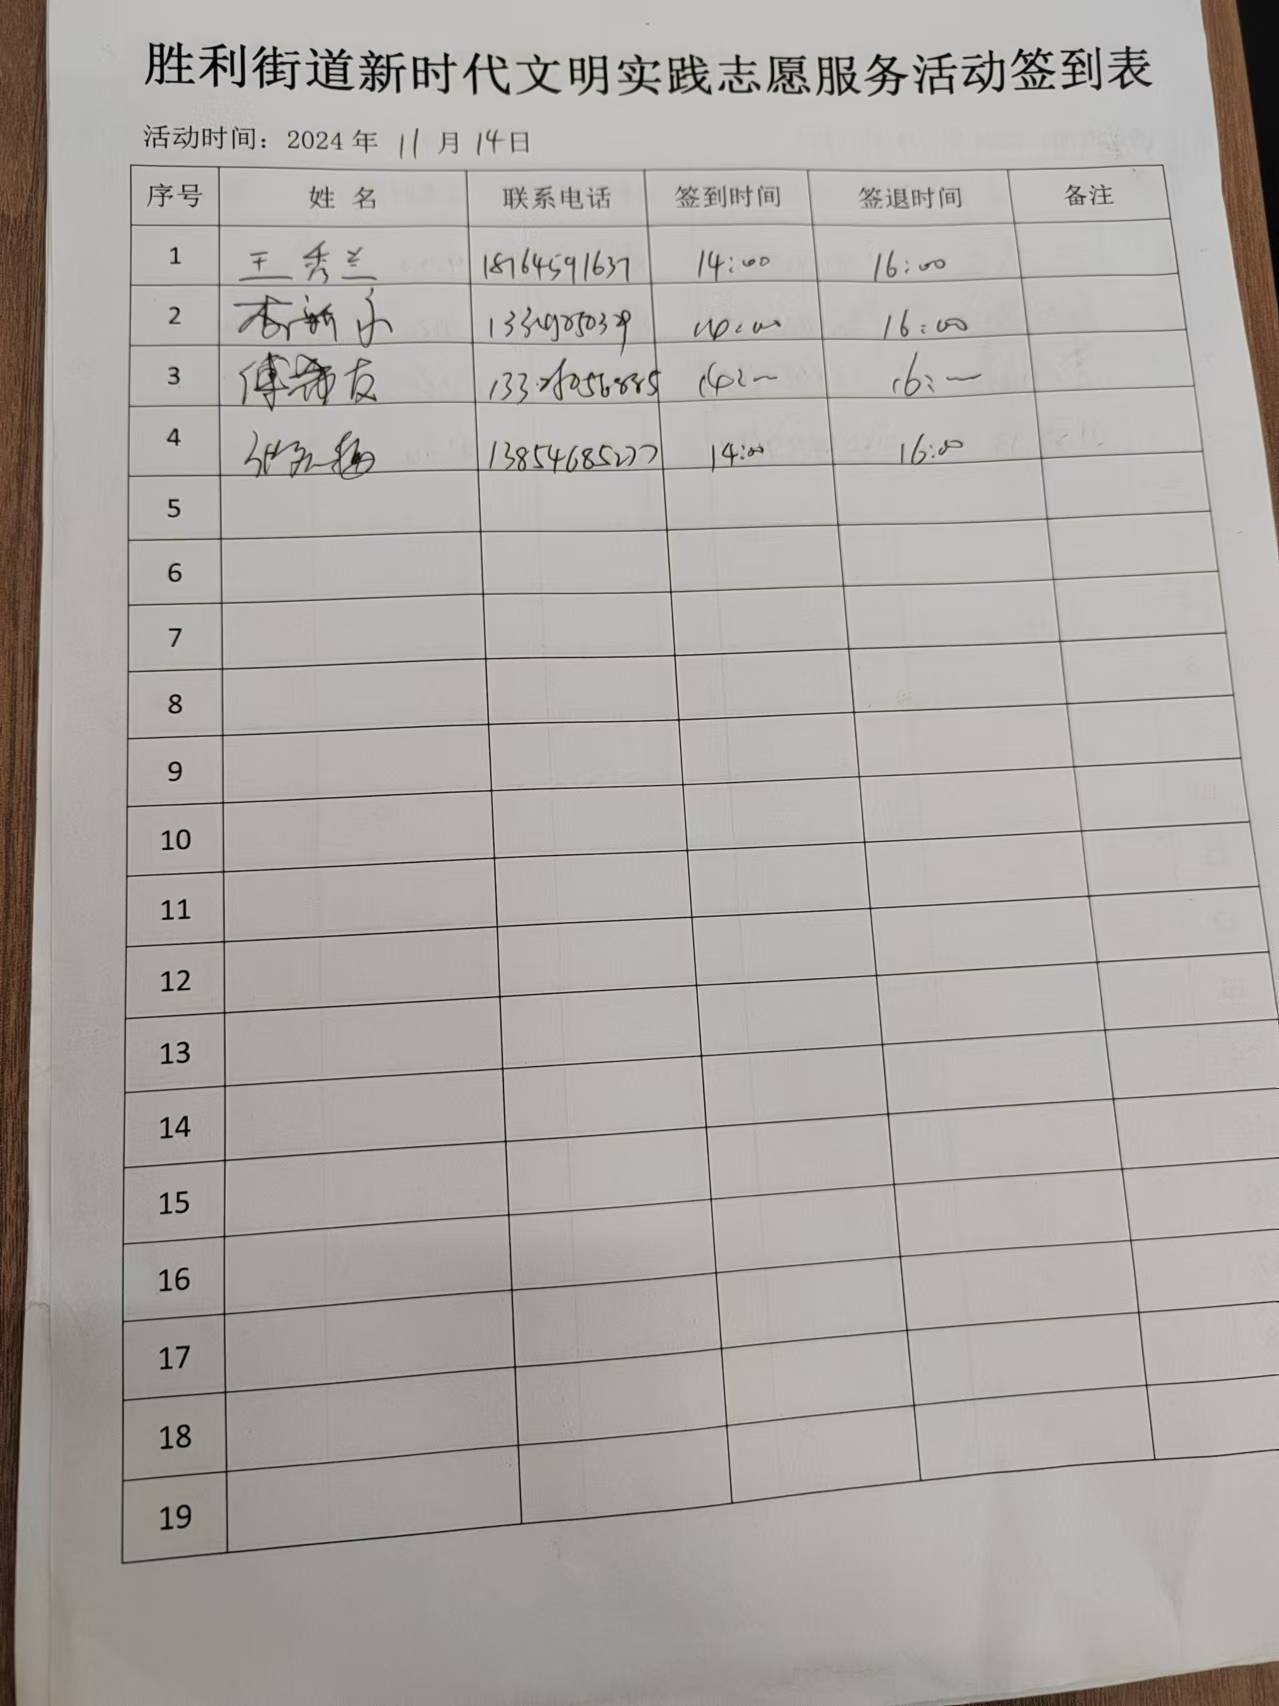 胜利街道新时代文明实践志愿服务活动签到表
活动时间：2024年 11月 14日
序号 姓 名 联系电话 签到时间 签退时间 备注
1 王秀兰 18764591637 14:00 16:00
2 14:00 16:00
3 傅 友 14:一 16:一
4 14:00 16:00
5
6
7
8
9
10
11
12
13
14
15
16
17
18
19